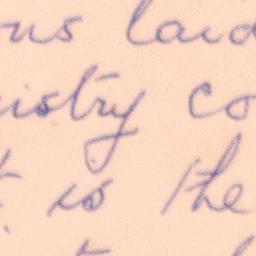 ous laid
istry co
t is the